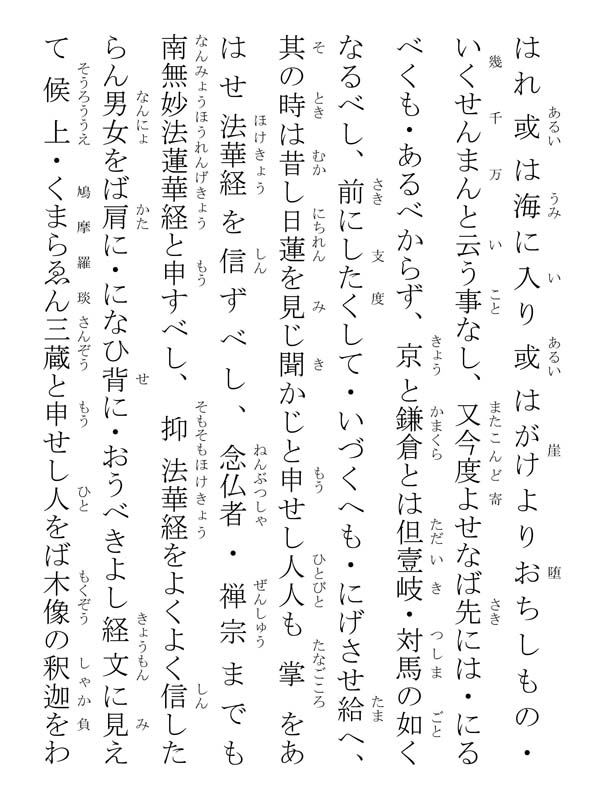 はれ或は海に入り或はがけよりおちしもの・
いくせんまんと云う事なし、又今度よせなば先には・にる
べくも・あるべからず、京と鎌倉とは但壹岐・対馬の如く
なるべし、前にしたくして・いづくへも・にげさせ給へ、
其の時は昔し日蓮を見じ聞かじと申せし人人も掌をあ
はせ法華経を信ずべし、念仏者・禅宗までも
南無妙法蓮華経と申すべし、抑法華経をよくよく信した
らん男女をば肩に・になひ背に・おうべきよし経文に見え
て候上・くまらゑん三蔵と申せし人をば木像の釈迦をわ